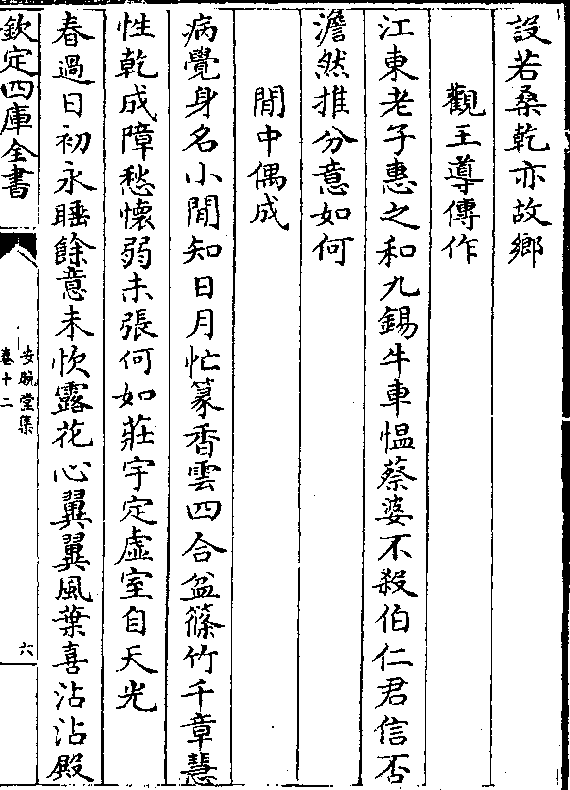 設若桑乾亦故鄉
觀王導傳作
江東老子惠之和九錫牛車愠蔡婆不殺伯仁君信否
澹然推分意如何
閒中偶成
病覺身名小閒知日月忙篆香雲四合盆篠竹千章慧
性乾成障愁懷弱未張何如莊宇定虛室自天光
春過日初永睡餘意未忺露花心翼翼風葉喜沾沾殿
欽定四庫全書
安晚堂集
卷十二
六